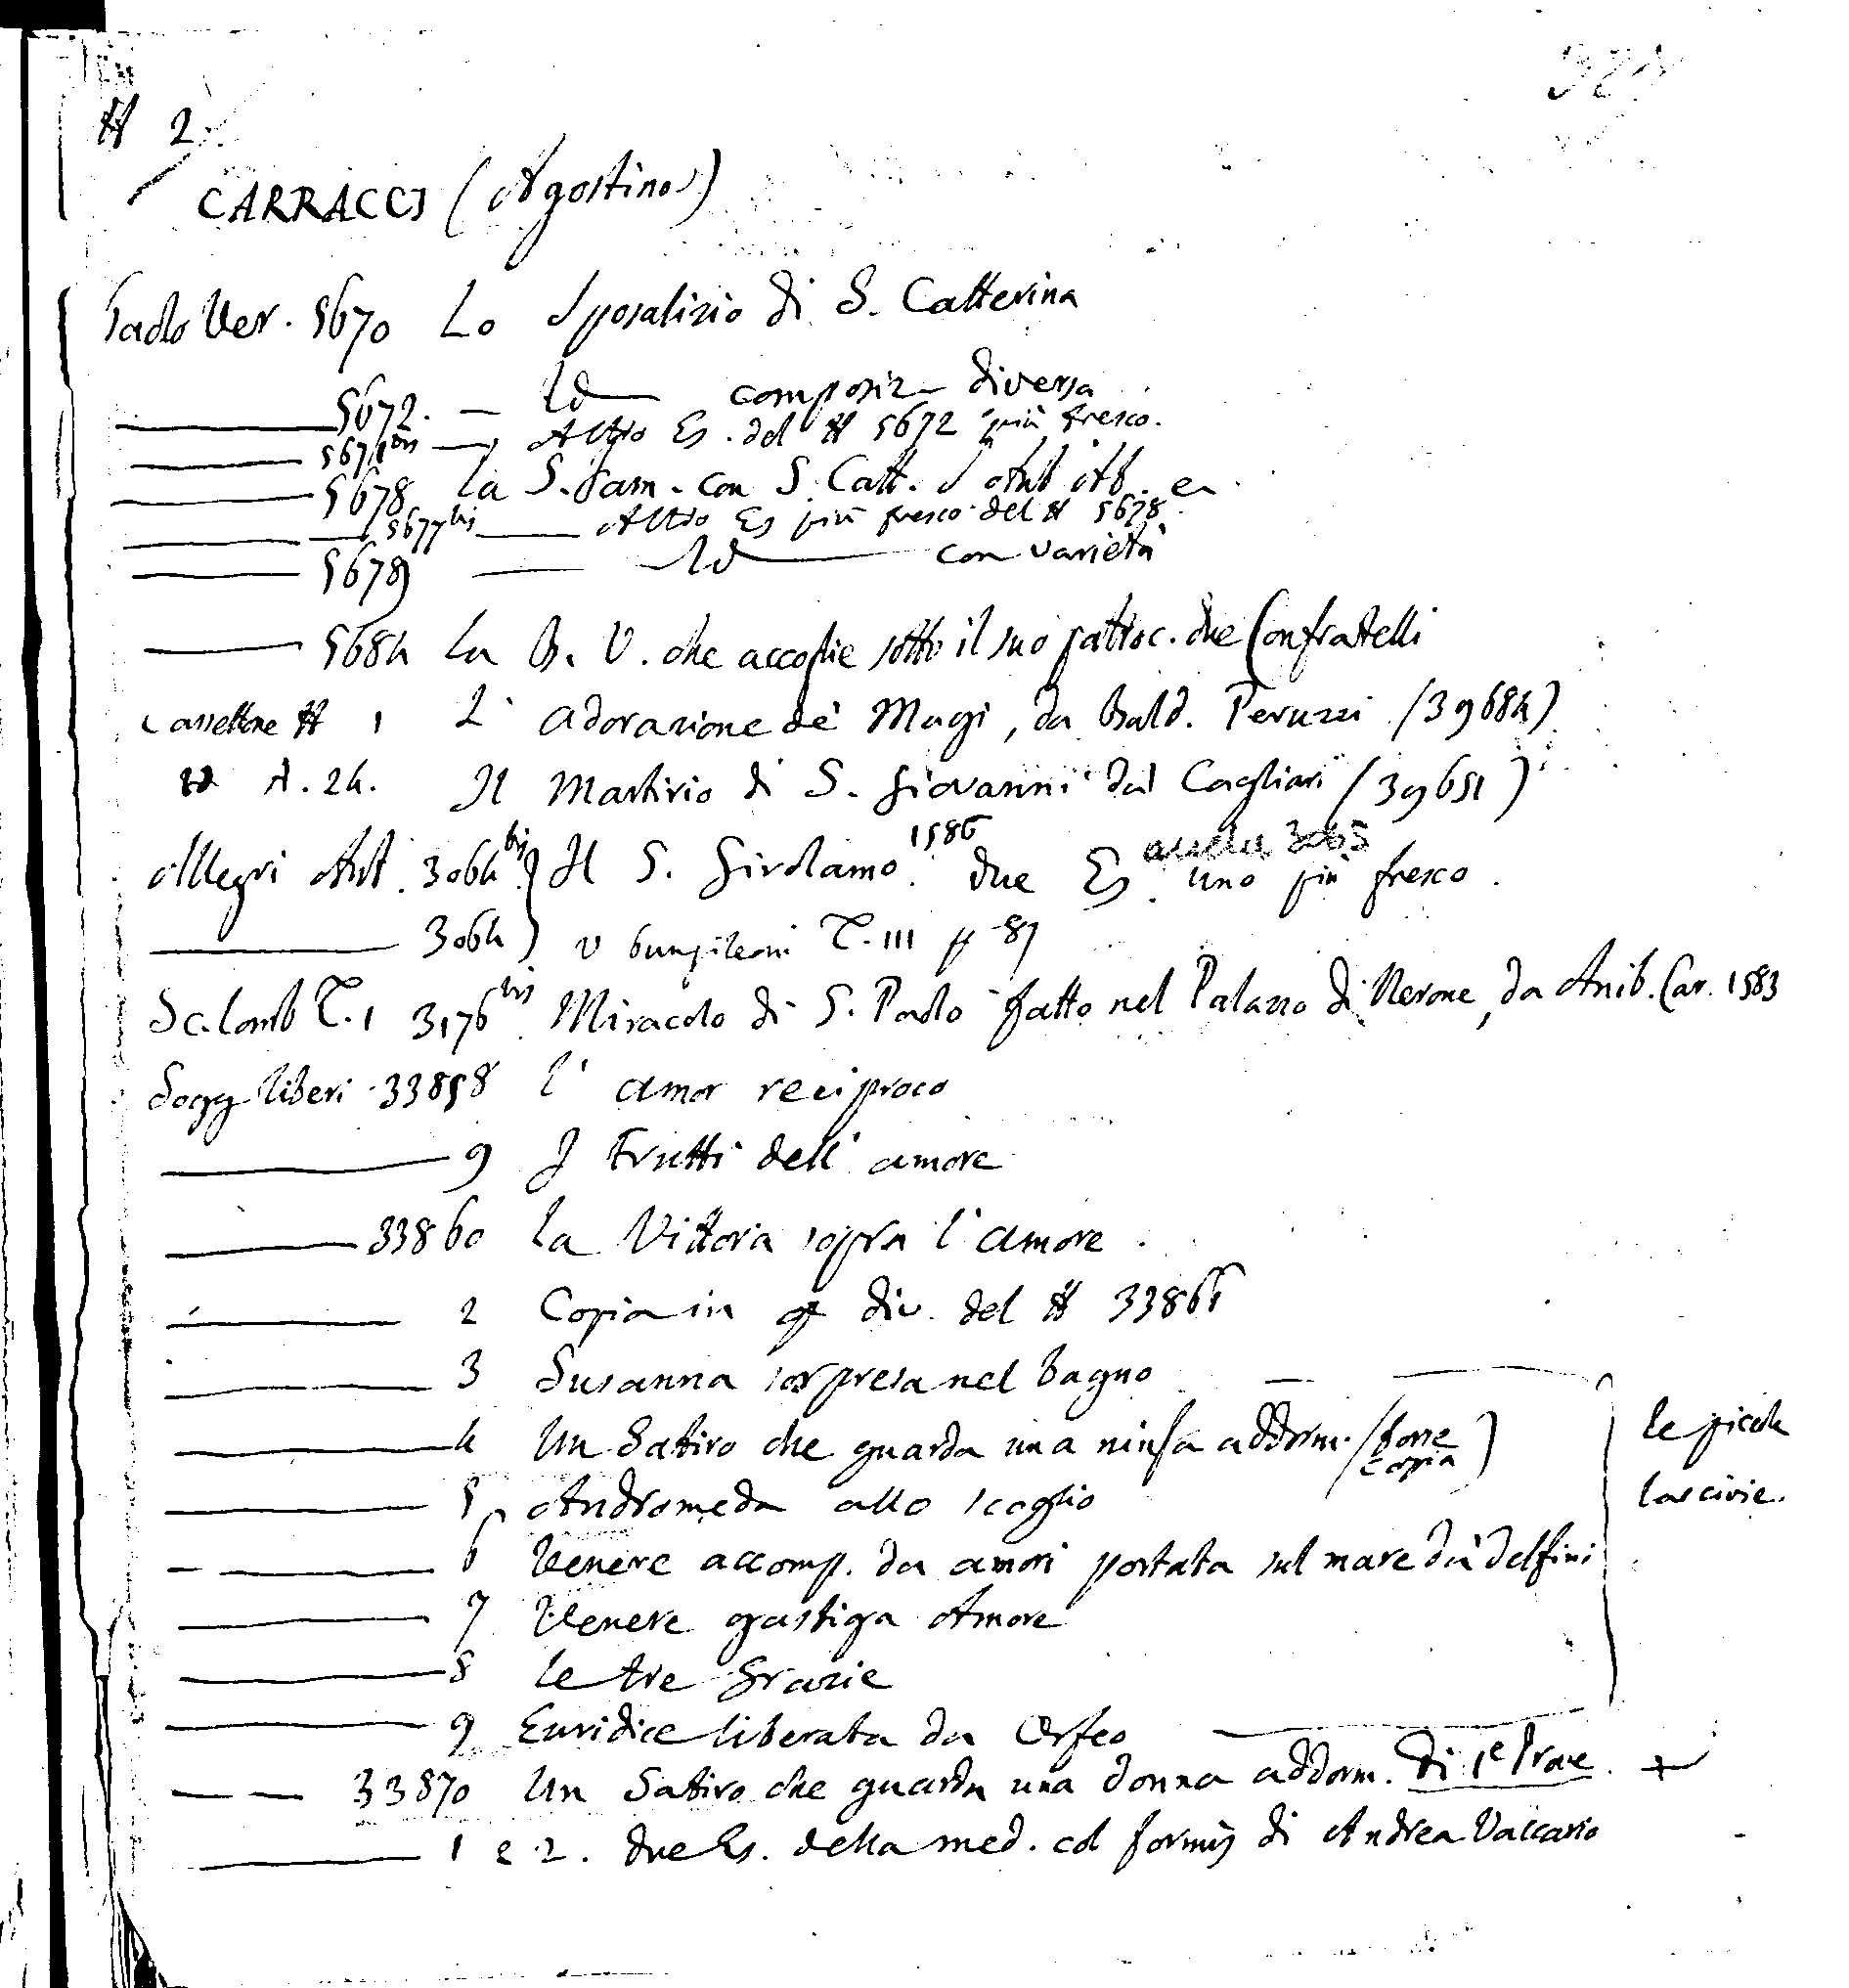 # 2
CARRACCI (Agostino)
Paolo Ver. 5670 Lo Sposalizio di S. Catterina
5672. — Id — composiz— diversa
5671bis — Altro Es. del # 5672 più fresco.
5678 La S. Fam. con S. Catt. S Ant Ab. e
5677bis — Altro Es più fresco del # 5678
5679 — Id — con varietà
5684 La B. V. che accoglie sotto il suo patroc. due Confratelli
Cassettone # 1 L' adorazione de' Magi, da Bald. Peruzzi (39684)
# A. 24. Il Martirio di S. Giovanni dal Cagliari (39651)
Allegri Ant. 3064bis) Il S. Girolamo. 1586 due Es. uno più fresco. anche 3065
3064) v Pungileoni T. III p 87
Sc. Lomb T. 1 3176bis Miracolo di S. Paolo fatto nel Palazzo di Nerone, da Anib. Car. 1583
Sogg liberi 33858 L' amor reciproco
9 I Frutti dell' amore
33860 La Vittoria sopra l' amore.
2 Copia in div. del # 33861
3 Susanna sorpresa nel bagno
4 Un Satiro che guarda una ninfa addorm. (forse copia)
le picole
5 Andromeda allo scoglio
lascivie.
6 Venere accomp. da amori portata sul mare da' delfini
7 Venere gastiga Amore
8 Le tre Grazie
9 Euridice liberata da Orfeo
33870 Un Satiro che guarda una donna addorm. di 1e Prove. +
1 e 2. due Es. della med. col formis di Andrea Vaccario